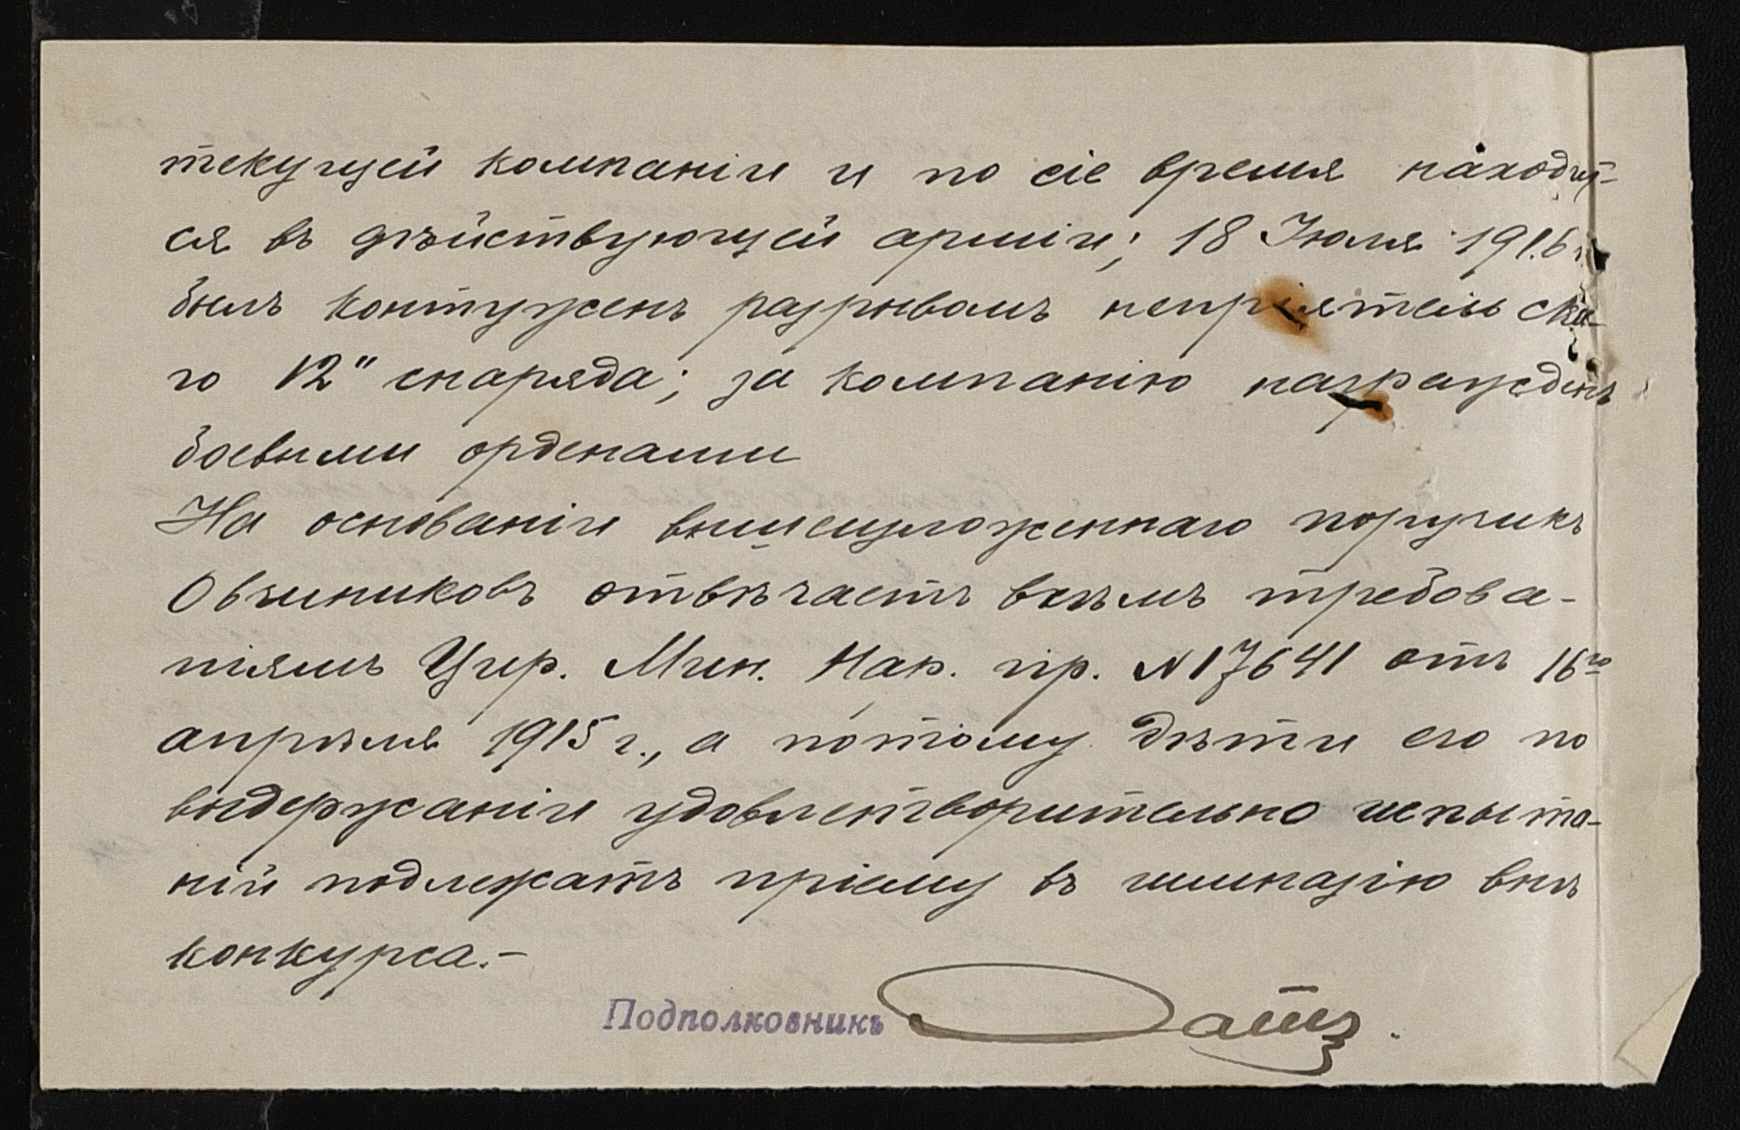 текущей компаніи и по сіе время находит-
ся въ дѣйствующей арміи; 18 Июля 1916 г.
былъ контуженъ разрывомъ непріятельска-
го 12" снаряда; за компанію награжденъ
боевыми орденами
На основаніи вышеизложеннаго поручикъ
Овчиниковъ отвѣчаетъ всѣмъ требова-
ніямъ Цир. Мин. Нар. пр. № 17641 отъ 16го
апрѣля 1915 г., а потому дѣти его по
выдержаніи удовлетворительно испыта-
ній подлежатъ пріему въ гимназію внѣ
конкурса.-
Подполковникъ